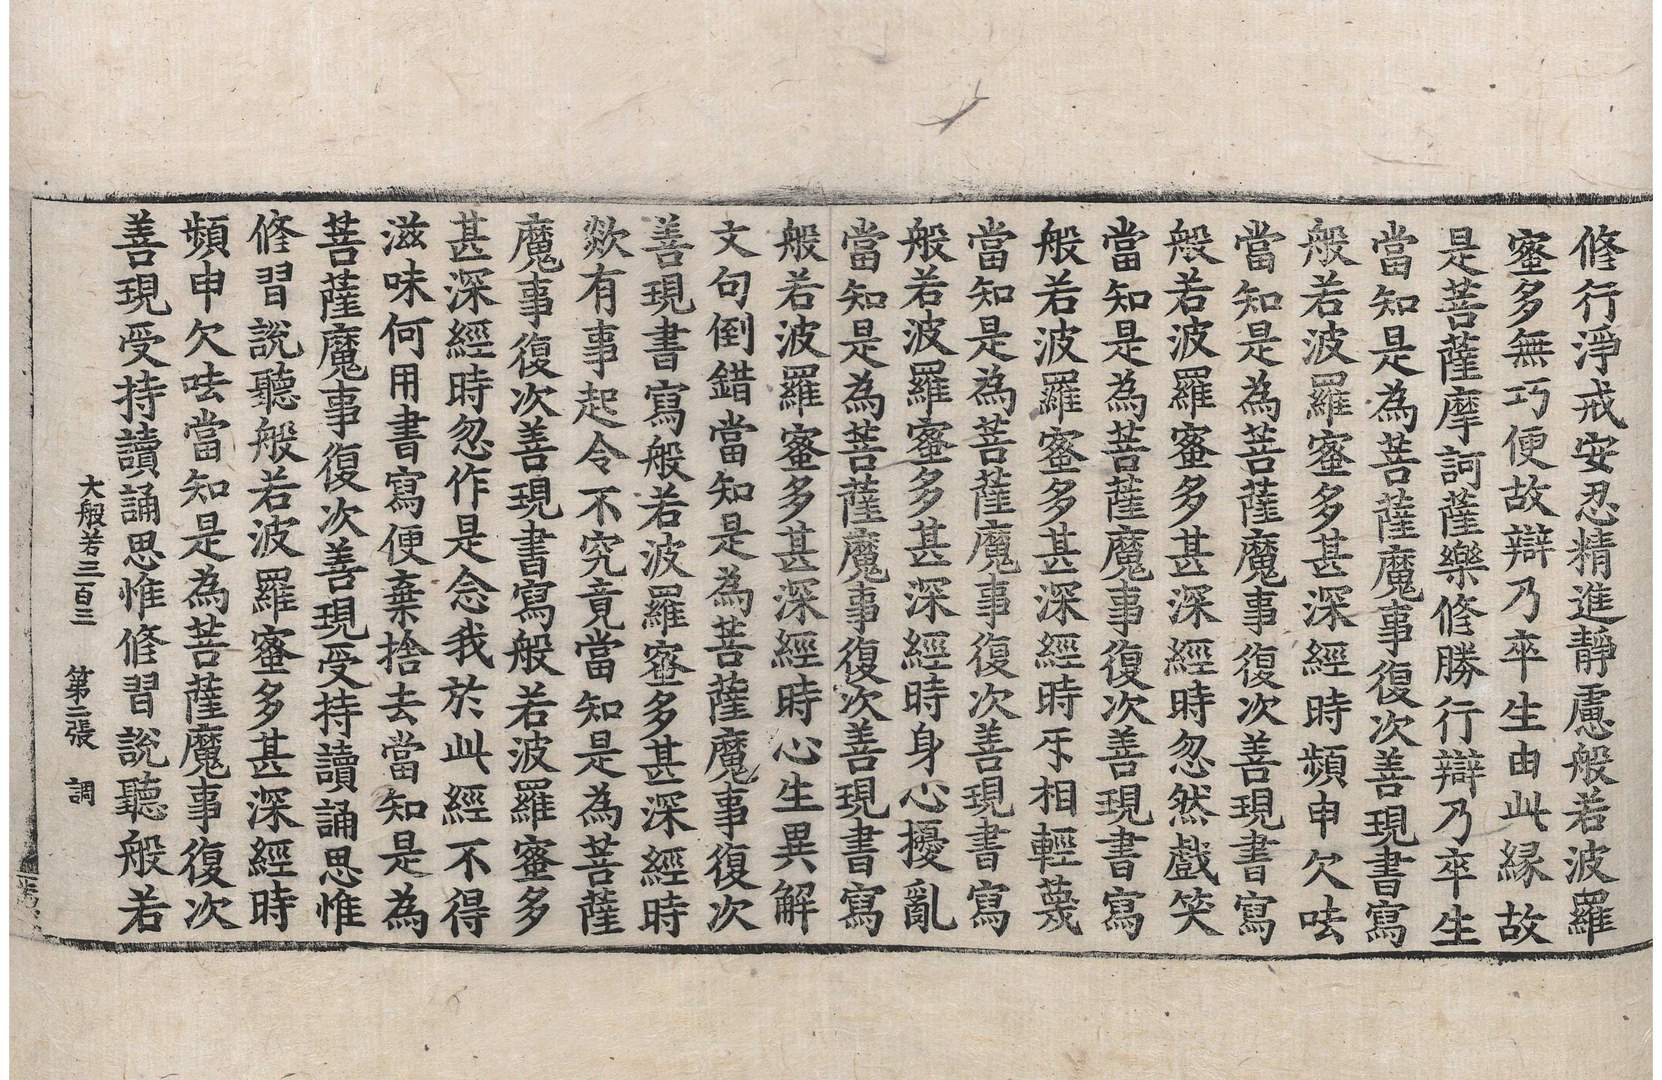 修行淨戒安忍精進靜慮般若波羅
蜜多無巧便故辯乃卒生由此緣故
是菩薩摩訶薩樂修勝行辯乃卒生
當知是為菩薩魔事復次善現書寫
般若波羅蜜多甚深經時頻申欠呿
當知是為菩薩魔事復次善現書寫
般若波羅蜜多甚深經時忽然戲笑
當知是為菩薩魔事復次善現書寫
般若波羅蜜多甚深經時互相輕蔑
當知是為菩薩魔事復次善現書寫
般若波羅蜜多甚深經時身心擾亂
當知是為菩薩魔事復次善現書寫
般若波羅蜜多甚深經時心生異解
文句倒錯當知是為菩薩魔事復次
善現書寫般若波羅蜜多甚深經時
欻有事起令不究竟當知是為菩薩
魔事復次善現書寫般若波羅蜜多
甚深經時忽作是念我於此經不得
滋味何用書寫便棄捨去當知是為
菩薩魔事復次善現受持讀誦思惟
修習說聽般若波羅蜜多甚深經時
頻申欠呿當知是為菩薩魔事復次
善現受持讀誦思惟修習說聽般若
大般若三百三 第二張 調